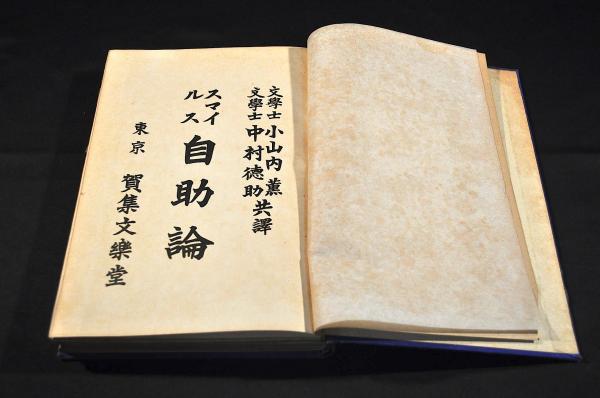 文學士 小山内薫
文學士 中村徳助 共譯
スマイルス
自助論
東京 賀集文樂堂